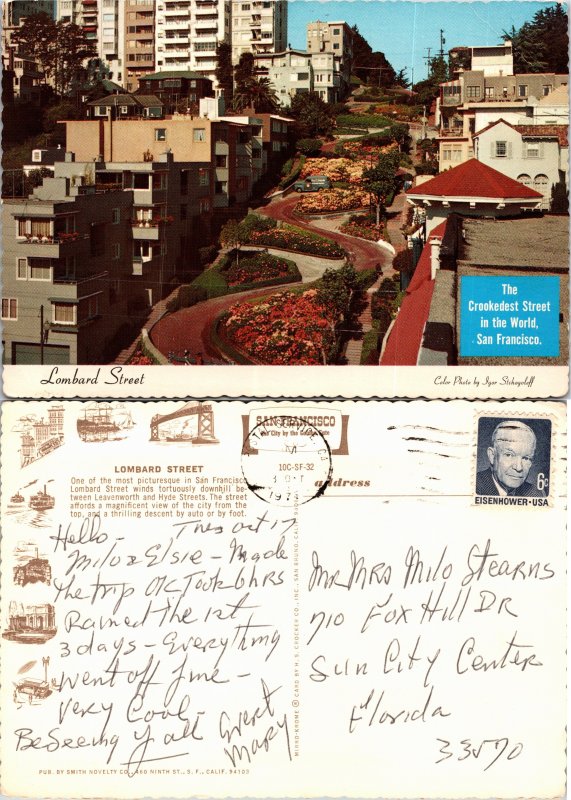 The
Crookedest Street
in the World,
San Francisco.
Lombard Street
Color Photo by Igor Stchogoleff
SAN FRANCISCO
City by the Golden Gate
LOMBARD STREET
One of the most picturesque in San Francisco
Lombard Street winds tortuously downhill be-
tween Leavenworth and Hyde Streets. The street
affords a magnificent view of the city from the
top, and a thrilling descent by auto or by foot.
10C-SF-32
address
EISENHOWER·USA
6c
Hello - Thes Oct 17
Milo & Elsie - Made
the trip OK Took 6 hRS
Rained The 1st
3 days - Everything
went off fine -
Very Cool -
Be Seeing y'all Evert
Mary
MR MRS Milo Stearns
710 Fox Hill DR
Sun City Center
Florida
33570
MIRRO-KROME ® CARD BY H. S. CROCKER CO., INC., SAN BRUNO, CA
PUB. BY SMITH NOVELTY CO., 460 NINTH ST., S. F., CALIF. 94103